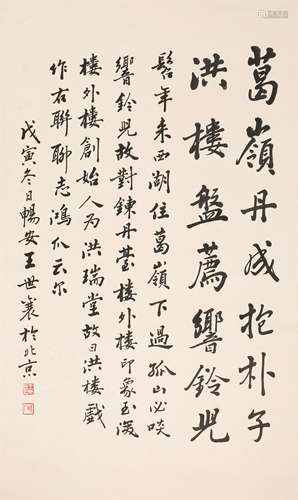 葛嶺丹成抱朴子
洪樓盤薦響鈴兒
髫年来西湖住葛嶺下過孤山必啖
響鈴兒故對鍊丹臺樓外樓印象至深
樓外樓創始人为洪瑞堂故曰洪樓戲
作右聯聊志鴻爪云尔
戊寅冬日暢安王世襄於北京